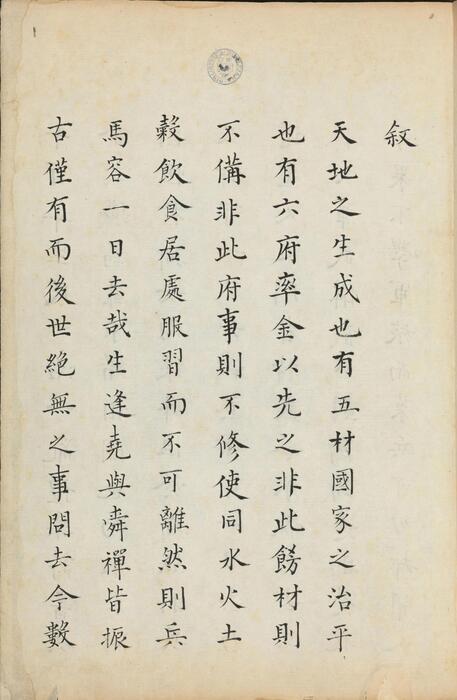 叙
天地之生成也有五材國家之治平
也有六府率金以先之非此餝材則
不俻非此府事則不修使同水火土
穀飲食居處服習而不可離然則兵
馬容一日去哉生逢堯與舜禪皆振
古僅有而後世絶無之事問去今數